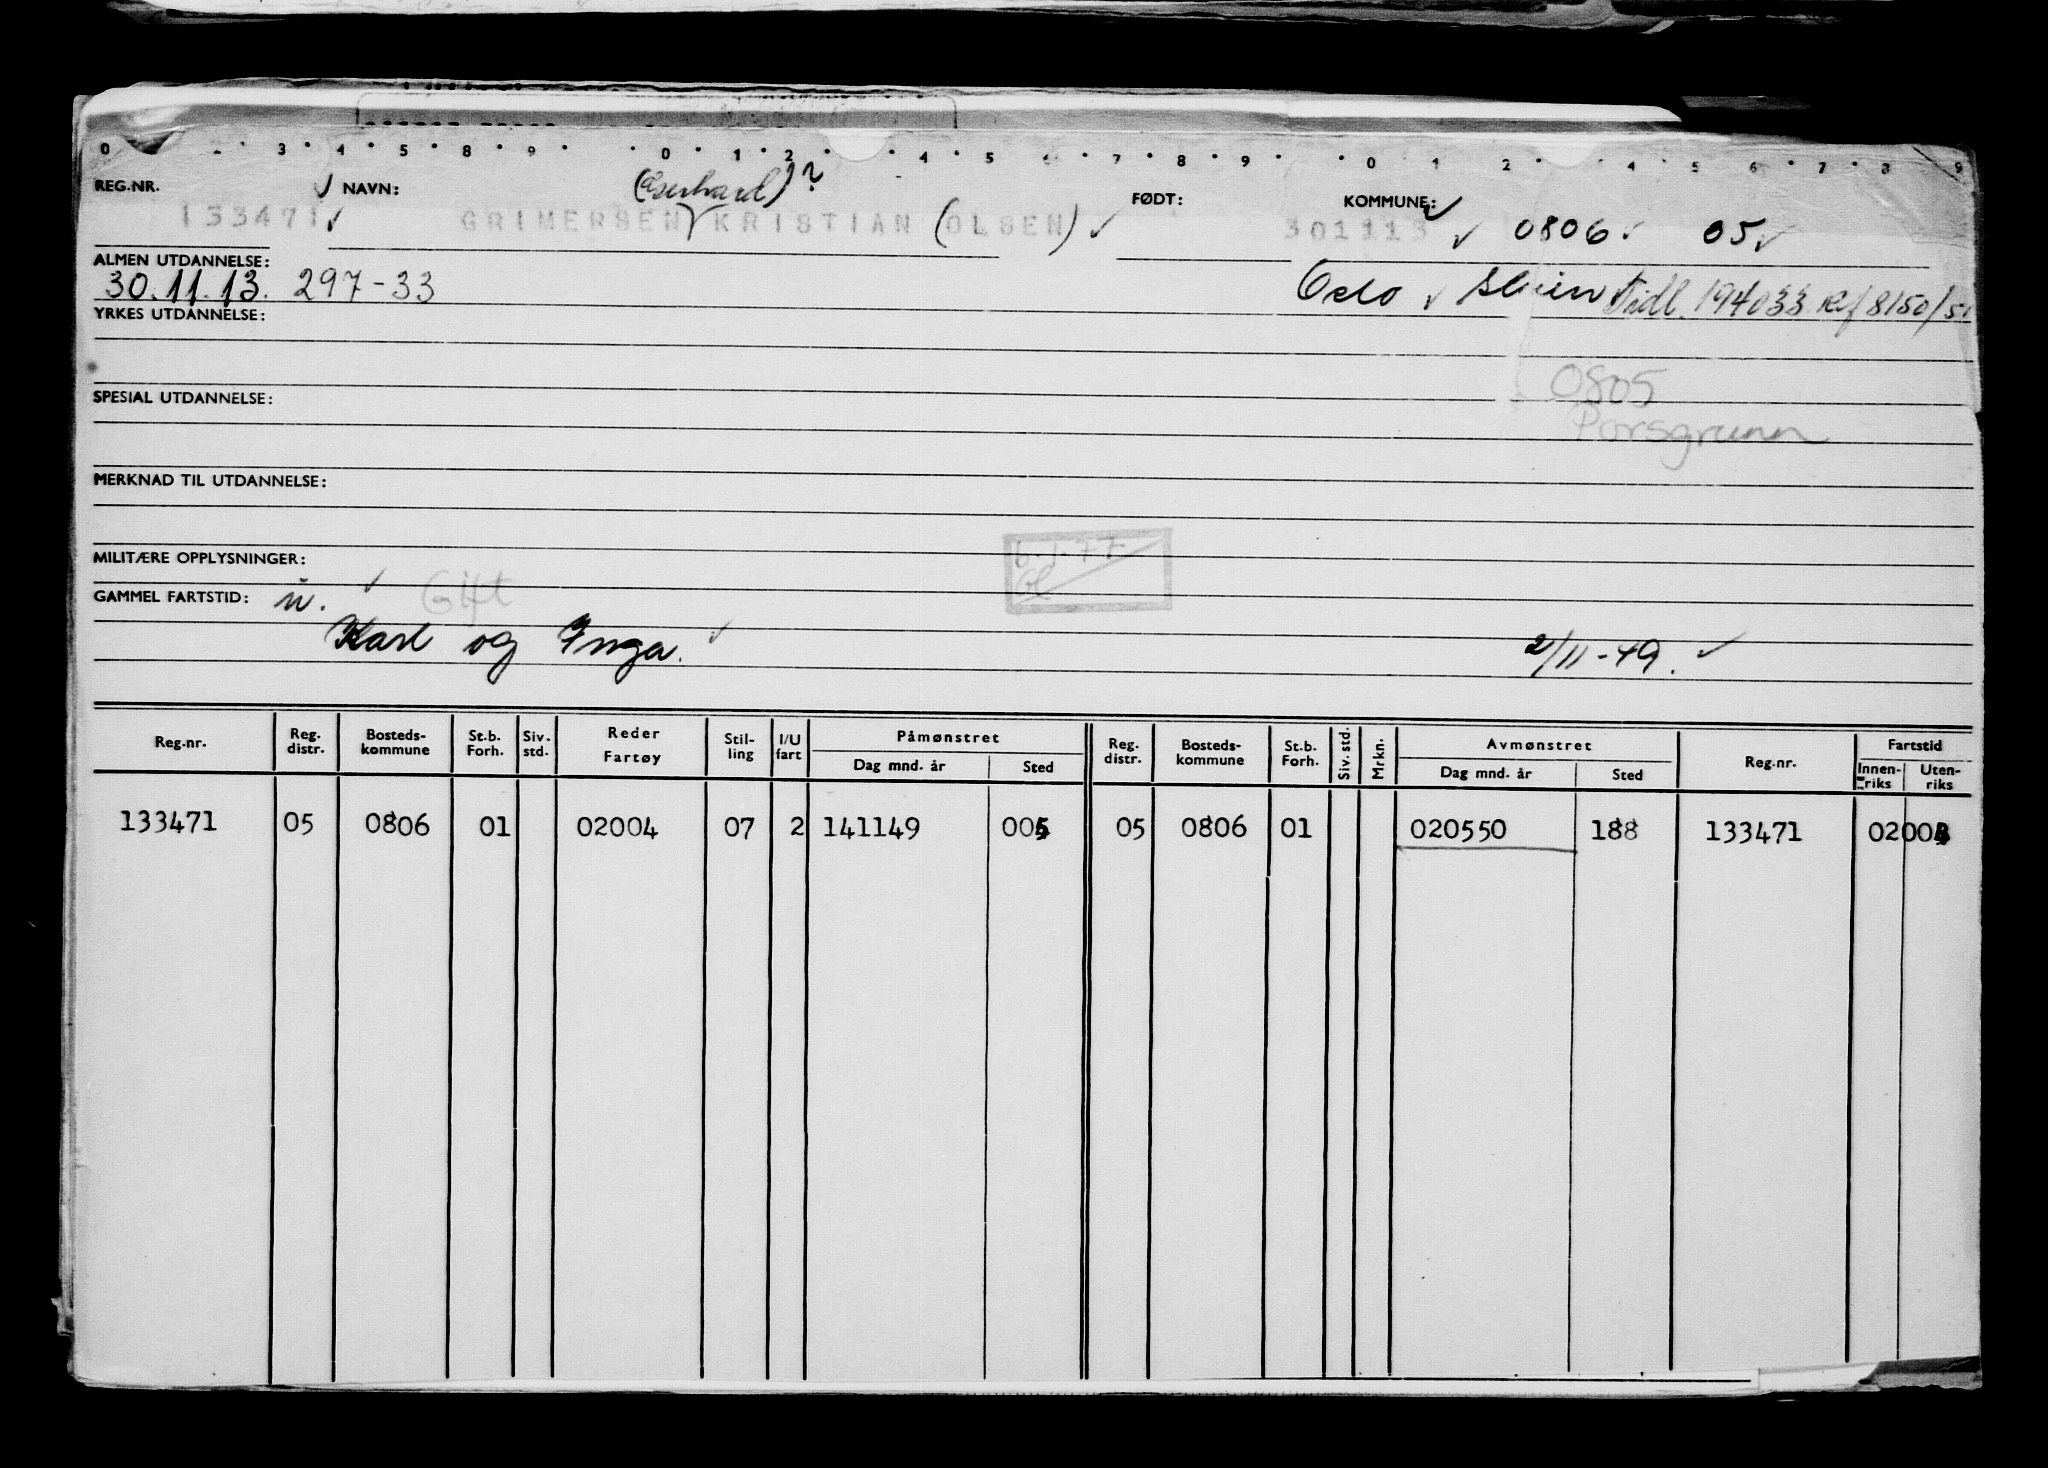 0 3 4 5 8 9 0 1 2 4 5 7 8 9 0 1 2 4 5 6 7 8 9
REG.NR. NAVN: (Gerhard)? FØDT: KOMMUNE:
133471 GRIMERSEN KRISTIAN (OLSEN) 301113 0806 05
ALMEN UTDANNELSE:
30.11.13. 297-33 Oslo Skien Tidl. 194033 Kf 8150/51
YRKES UTDANNELSE:
0805
SPESIAL UTDANNELSE:
Porsgrunn
MERKNAD TIL UTDANNELSE:
6.1.77
MILITÆRE OPPLYSNINGER:
GAMMEL FARTSTID: u. Gift
Karl og Inga. 2/11-49.
Reg.nr. Reg. distr. Bosteds-kommune St.b. Forh. Siv. std. Reder Fartøy Stil-ling I/U fart Påmønstret Dag mnd. år Sted Reg. distr. Bosteds-kommune St.b. Forh. Siv. std. Mrkn. Avmønstret Dag mnd. år Sted Reg.nr. Fartstid Innen-riks Uten-riks
133471 05 0806 01 02004 07 2 141149 005 05 0806 01 020550 188 133471 02003